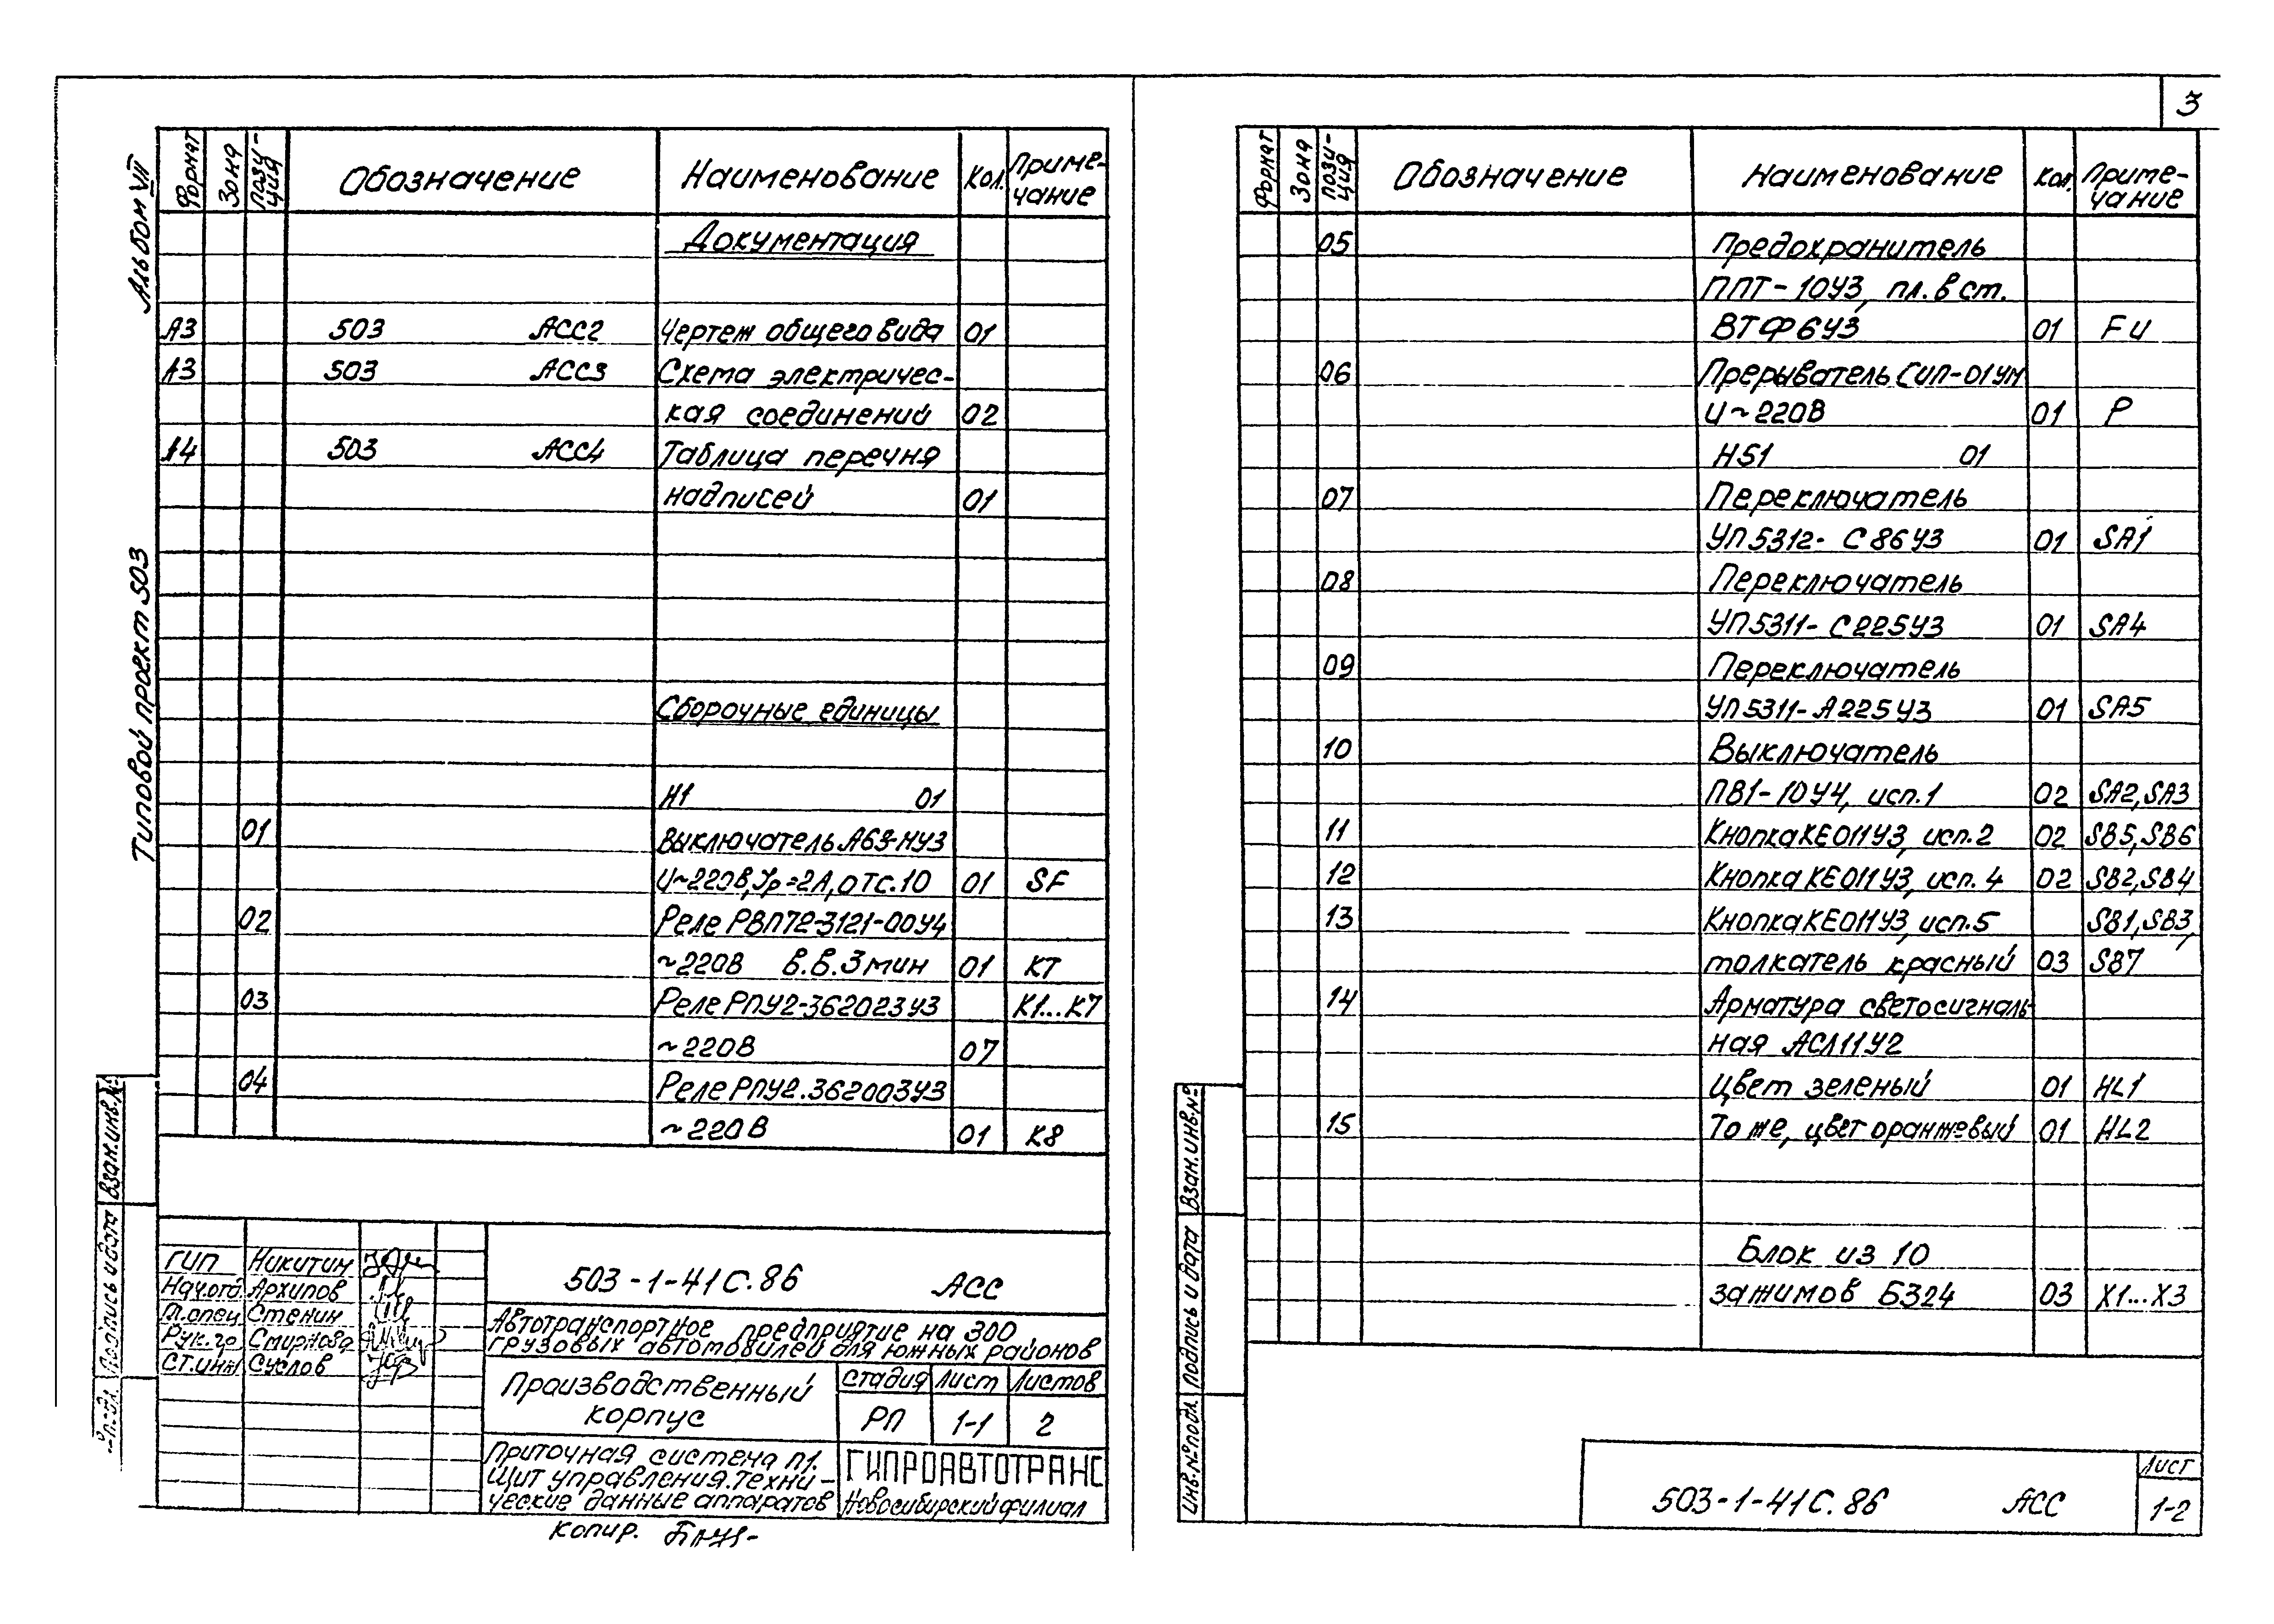 3
Альбом VII
Типовой проект 503
Формат Зона Пози-ция Обозначение Наименование Кол. Приме-чание
Документация
А3 503 АСС2 Чертеж общего вида 01
А3 503 АСС3 Схема электричес-
кая соединений 02
А4 503 АСС4 Таблица перечня
надписей 01
Сборочные единицы
Н1 01
01 Выключатель А63-МУ3
U~220В, Iр=2А, отс.10 01 SF
02 Реле РВП72-3121-00У4
~220В в.в. 3 мин 01 КТ
03 Реле РПУ2-362023У3 К1...К7
~220В 07
04 Реле РПУ2.362003У3
~220В 01 К8
Взам.инв.№
Подпись и дата
ГИП Никитин
Нач.отд. Архипов
Гл.спец Стенин
Рук.гр. Смирнова
Ст.инж Суслов
503-1-41С.86 АСС
Автотранспортное предприятие на 300
грузовых автомобилей для южных районов
Производственный
корпус
Стадия Лист Листов
РП 1-1 2
Приточная система П1.
Щит управления. Техни-
ческие данные аппаратов
ГИПРОАВТОТРАНС
Новосибирский филиал
Копир.
Формат Зона Пози-ция Обозначение Наименование Кол. Приме-чание
05 Предохранитель
ППТ-10У3, пл. вст.
ВТФ6У3 01 FU
06 Прерыватель СИП-01УМ
U~220В 01 Р
Н51 01
07 Переключатель
УП5312-С86У3 01 SA1
08 Переключатель
УП5311-С225У3 01 SA4
09 Переключатель
УП5311-А225У3 01 SA5
10 Выключатель
ПВ1-10У4, исп.1 02 SA2, SA3
11 Кнопка КЕ011У3, исп.2 02 SB5, SB6
12 Кнопка КЕ011У3, исп.4 02 SB2, SB4
13 Кнопка КЕ011У3, исп.5 SB1, SB3,
толкатель красный 03 SB7
14 Арматура светосигналь-
ная АСЛ11У2
Цвет зеленый 01 HL1
15 То же, цвет оранжевый 01 HL2
Блок из 10
зажимов Б324 03 Х1...Х3
Взам.инв.№
Подпись и дата
Инв.№ подл.
503-1-41С.86 АСС
Лист
1-2